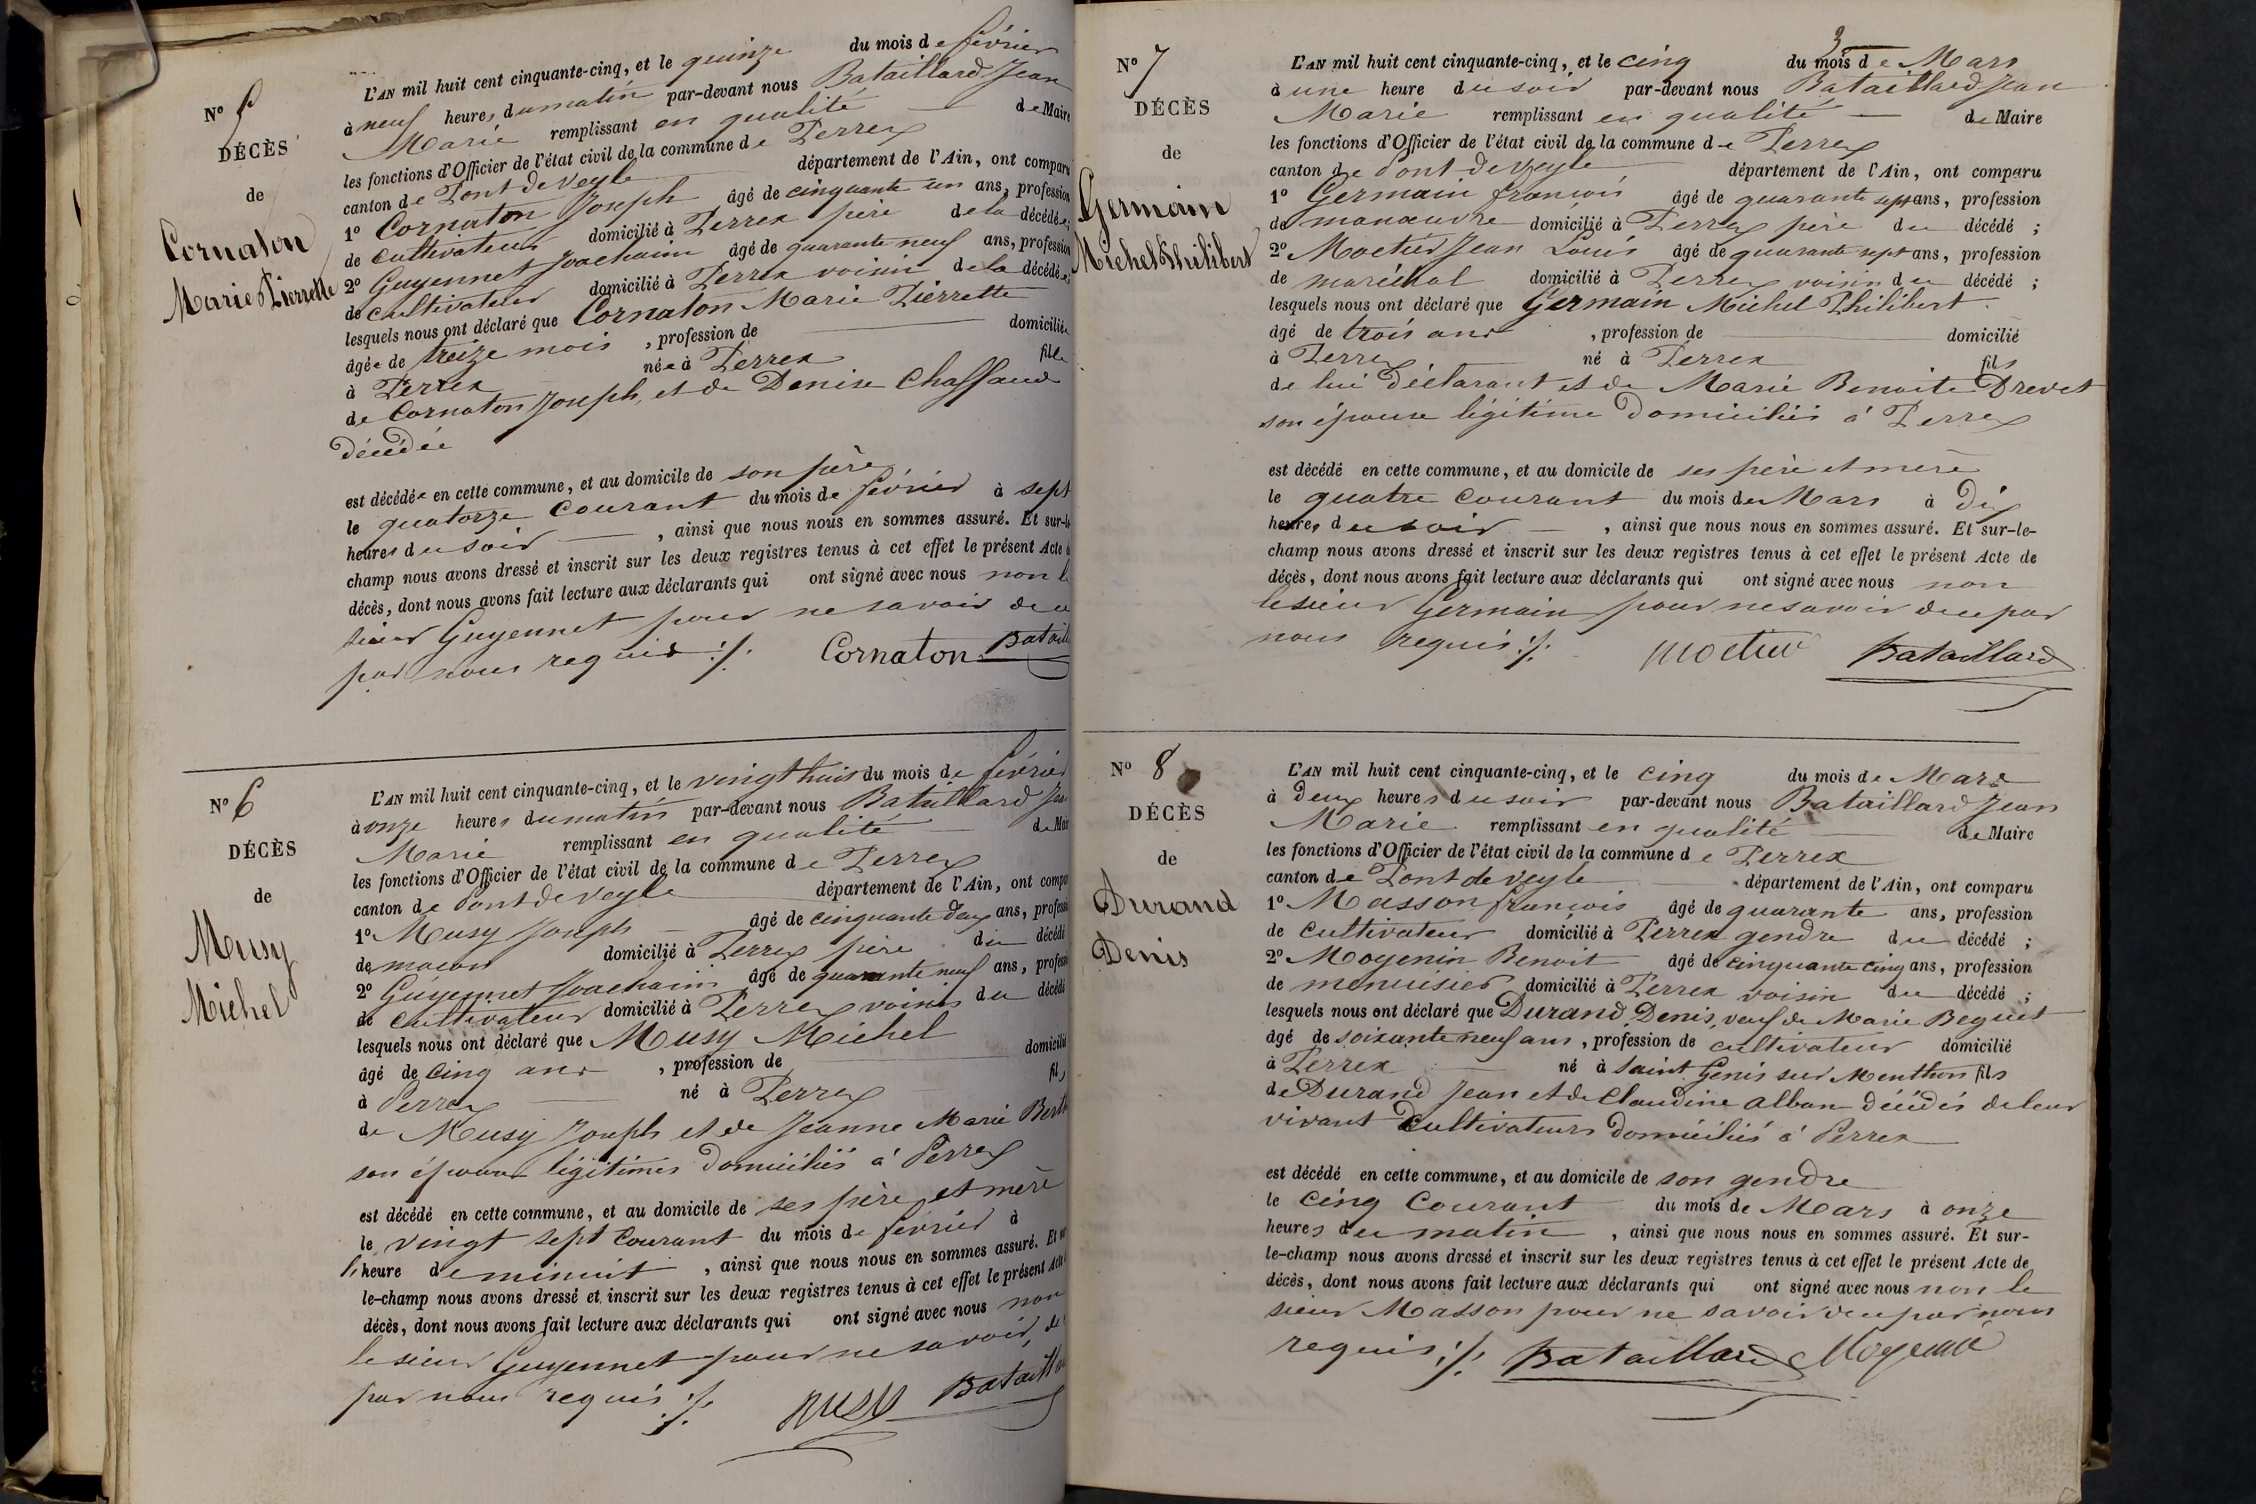 Nº 5
DÉCÈS
de
Cornaton
Marie Pierrette
L'AN mil huit cent cinquante-cinq, et le quinze du mois de février
à neuf heures du matin par-devant nous Bataillard Jean
Marie remplissant en qualité de Maire
les fonctions d'Officier de l'état civil de la commune de Perrex
canton de Pont de Veyle département de l'Ain, ont comparu
1º Cornaton Joseph âgé de cinquante un ans, profession
de cultivateur domicilié à Perrex père de la décédée;
2º Guyennet Joachim âgé de quarante neuf ans, profession
de cultivateur domicilié à Perrex voisin de la décédée;
lesquels nous ont déclaré que Cornaton Marie Pierrette
âgée de treize mois , profession de domiciliée
à Perrex née à Perrex fille
de Cornaton Joseph, et de Denise Chaffaud
décédée
est décédée en cette commune, et au domicile de son père
le quatorze courant du mois de février à sept
heures du soir , ainsi que nous nous en sommes assuré. Et sur-le
champ nous avons dressé et inscrit sur les deux registres tenus à cet effet le présent Acte de
décès, dont nous avons fait lecture aux déclarants qui ont signé avec nous non le
sieur Guyennet pour ne savoir de ce
par nous requis ./. Cornaton Batail
Nº 6
DÉCÈS
de
Musy
Michel
L'AN mil huit cent cinquante-cinq, et le vingt huit du mois de février
à onze heures du matin par-devant nous Bataillard Jean
Marie remplissant en qualité de Maire
les fonctions d'Officier de l'état civil de la commune de Perrex
canton de Pont de Veyle département de l'Ain, ont compa
1º Musy Joseph âgé de cinquante deux ans, profession
de maçon domicilié à Perrex père du décédé
2º Guyennet Joachim âgé de quarante neuf ans, profession
de cultivateur domicilié à Perrex voisin du décédé
lesquels nous ont déclaré que Musy Michel
âgé de cinq ans , profession de domicilié
à Perrex né à Perrex fils
de Musy Joseph et de Jeanne Marie Berth
son épouse légitimes domiciliés à Perrex
est décédé en cette commune, et au domicile de ses père et mère
le vingt sept courant du mois de février à
heure de minuit , ainsi que nous nous en sommes assuré. Et sur
le-champ nous avons dressé et inscrit sur les deux registres tenus à cet effet le présent Acte
décès, dont nous avons fait lecture aux déclarants qui ont signé avec nous non
le sieur Guyennet pour ne savoir, de
par nous requis ./. Musy Bataillar
3
Nº 7
DÉCÈS
de
Germain
Michel Philibert
L'AN mil huit cent cinquante-cinq, et le cinq du mois de Mars
à une heure du soir par-devant nous Bataillard Jean
Marie remplissant en qualité de Maire
les fonctions d'Officier de l'état civil de la commune de Perrex
canton de Pont de Veyle département de l'Ain, ont comparu
1º Germain françois âgé de quarante sept ans, profession
de manœuvre domicilié à Perrex père du décédé ;
2º Moctier Jean Louis âgé de quarante sept ans, profession
de maréchal domicilié à Perrex voisin du décédé ;
lesquels nous ont déclaré que Germain Michel Philibert
âgé de trois ans , profession de domicilié
à Perrex né à Perrex fils
de lui déclarant et de Marie Benoite Drevet
son épouse légitime domiciliés à Perrex
est décédé en cette commune, et au domicile de ses père et mère
le quatre courant du mois de Mars à Dix
heures du soir , ainsi que nous nous en sommes assuré. Et sur-le-
champ nous avons dressé et inscrit sur les deux registres tenus à cet effet le présent Acte de
décès, dont nous avons fait lecture aux déclarants qui ont signé avec nous non
le sieur Germain pour ne savoir de ce par
nous requis ./. Moctier Bataillard
Nº 8
DÉCÈS
de
Durand
Denis
L'AN mil huit cent cinquante-cinq, et le cinq du mois de Mars
à deux heures du soir par-devant nous Bataillard Jean
Marie remplissant en qualité de Maire
les fonctions d'Officier de l'état civil de la commune de Perrex
canton de Pont de veyle département de l'Ain, ont comparu
1º Masson françois âgé de quarante ans, profession
de cultivateur domicilié à Perrex gendre du décédé ;
2º Moyenin Benoit âgé de cinquante cinq ans, profession
de menuisier domicilié à Perrex voisin du décédé ;
lesquels nous ont déclaré que Durand Denis, veuf de Marie Beguet
âgé de soixante neuf ans , profession de cultivateur domicilié
à Perrex né à Saint Genis sur Menthon fils
de Durand Jean et de Claudine Alban décédés de leur
vivant Cultivateurs domiciliés à Perrex
est décédé en cette commune, et au domicile de son gendre
le cinq courant du mois de Mars à onze
heures du matin , ainsi que nous nous en sommes assuré. Et sur-
le-champ nous avons dressé et inscrit sur les deux registres tenus à cet effet le présent Acte de
décès, dont nous avons fait lecture aux déclarants qui ont signé avec nous non le
sieur Masson pour ne savoir de ce par nous
requis ./. Bataillard Moyenin